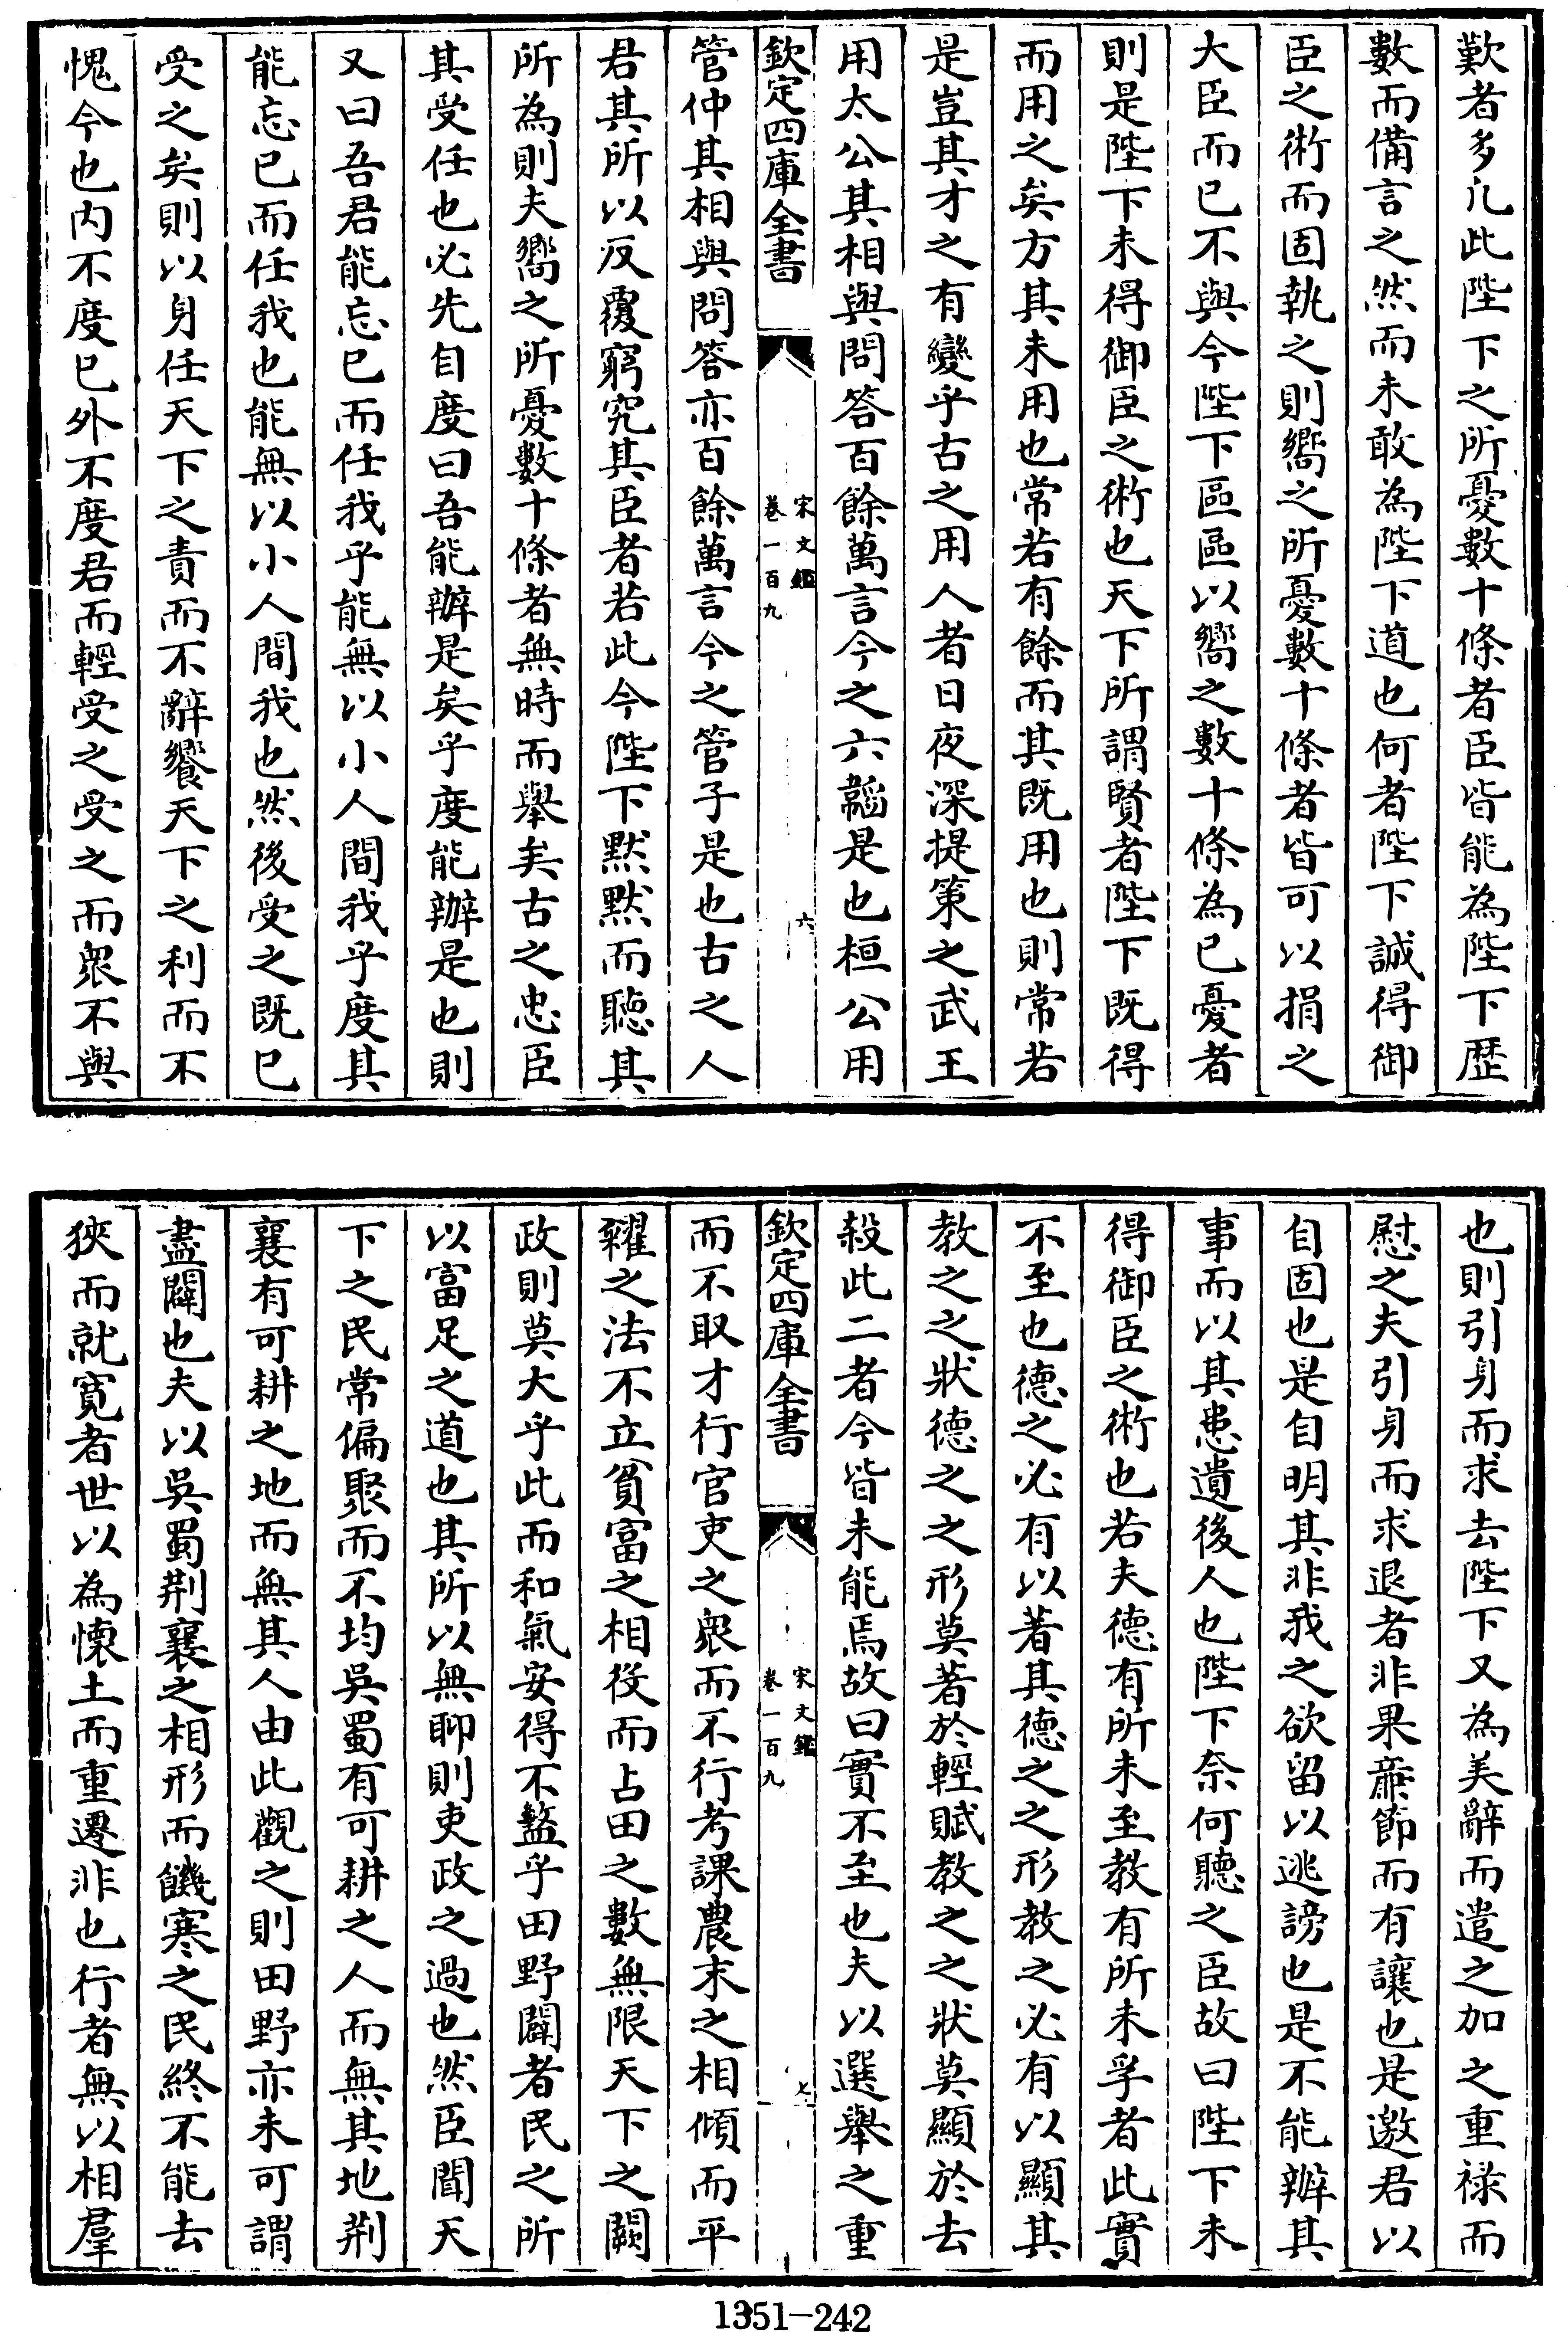 歎者多凢此陛下之所憂數十條者臣皆能為陛下歴
數而備言之然而未敢為陛下道也何者陛下誠得御
臣之術而固執之則嚮之所憂數十條者皆可以捐之
大臣而已不與今陛下區區以嚮之數十條為已憂者
則是陛下未得御臣之術也天下所謂賢者陛下既得
而用之矣方其未用也常若有餘而其既用也則常若
是豈其才之有變乎古之用人者日夜深提策之武王
用太公其相與問答百餘萬言今之六韜是也桓公用
欽定四庫全書
宋文鑑
卷一百九
六
管仲其相與問答亦百餘萬言今之管子是也古之人
君其所以反覆窮究其臣者若此今陛下黙黙而聽其
所為則夫嚮之所憂數十條者無時而舉矣古之忠臣
其受任也必先自度曰吾能辦是矣乎度能辦是也則
又曰吾君能忘已而任我乎能無以小人間我乎度其
能忘已而任我也能無以小人間我也然後受之既已
受之矣則以身任天下之責而不辭饗天下之利而不
愧今也内不度已外不度君而輕受之受之而衆不與
也則引身而求去陛下又為美辭而遣之加之重禄而
慰之夫引身而求退者非果亷節而有讓也是邀君以
自固也是自明其非我之欲留以逃謗也是不能辦其
事而以其患遺後人也陛下奈何聽之臣故曰陛下未
得御臣之術也若夫德有所未至教有所未孚者此實
不至也德之必有以著其德之之形教之必有以顯其
教之之狀德之之形莫著於輕賦教之之狀莫顯於去
殺此二者今皆未能焉故曰實不至也夫以選舉之重
欽定四庫全書
宋文鑑
卷一百九
七
而不取才行官吏之衆而不行考課農末之相傾而平
糴之法不立貧富之相役而占田之數無限天下之闕
政則莫大乎此而和氣安得不盭乎田野闢者民之所
以富足之道也其所以無聊則吏政之過也然臣聞天
下之民常偏聚而不均吳蜀有可耕之人而無其地荆
襄有可耕之地而無其人由此觀之則田野亦未可謂
盡闢也夫以吳蜀荆襄之相形而饑寒之民終不能去
狹而就寛者世以為懐土而重遷非也行者無以相羣
1351-242